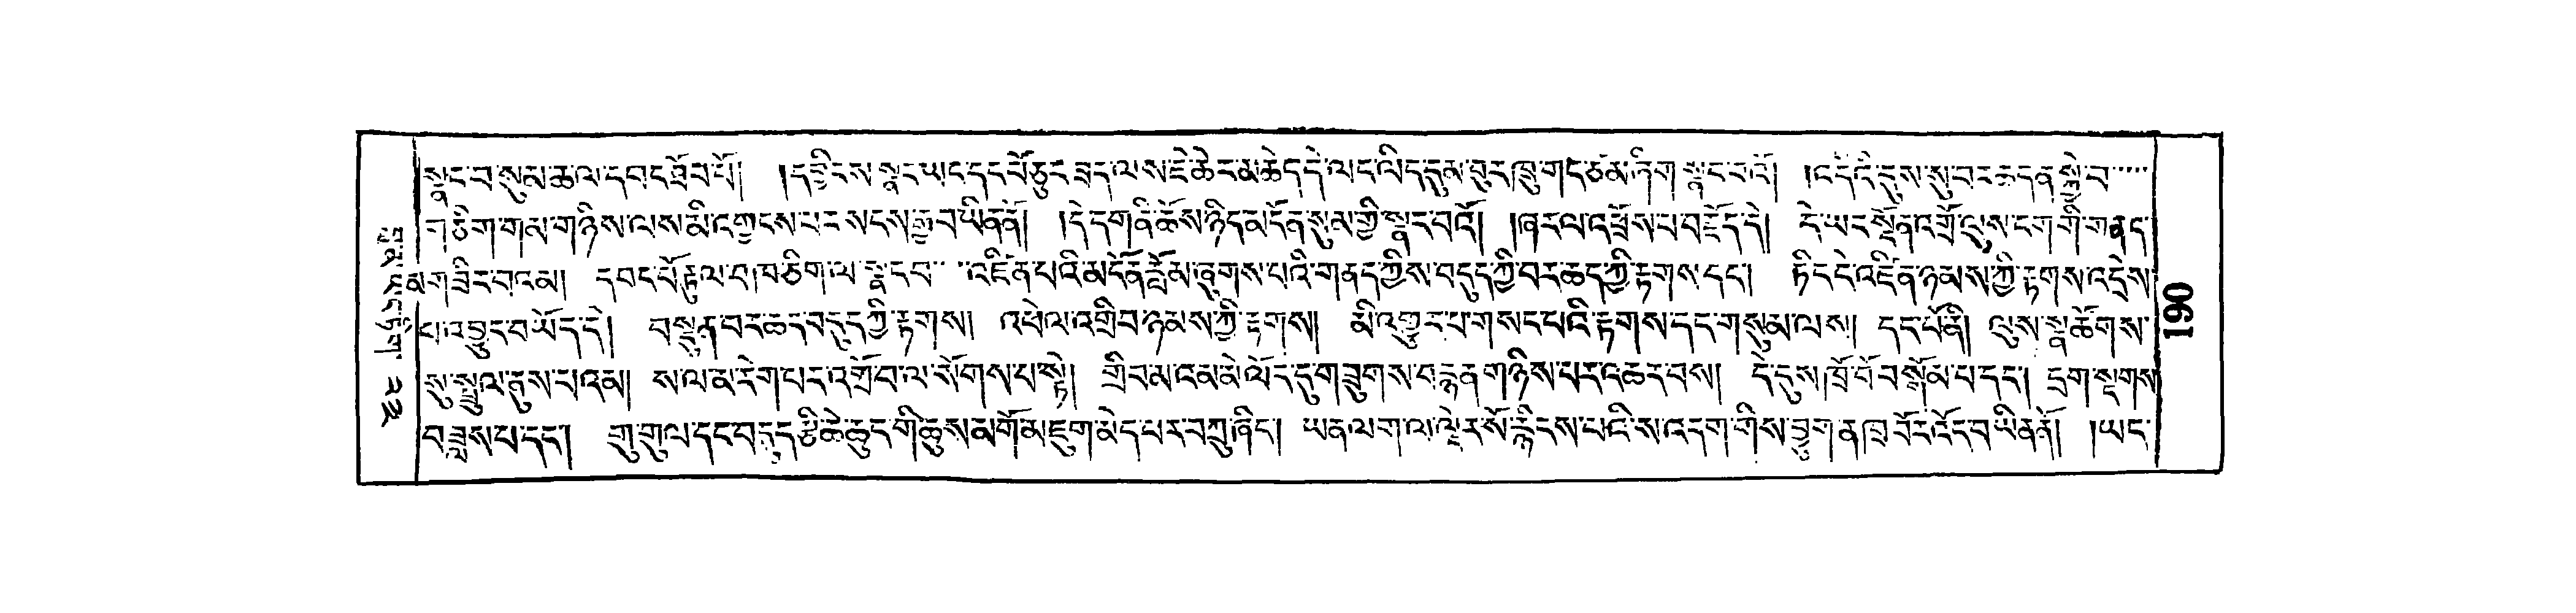 སྣང་བ་སུམ་ཆལ་དབང་ཐོབ་པོ། །དབྱིངས་སྣང་ཡང་དང་པོ་ཅུང་ཟད་ལས་ཇེ་ཆེར་མཆེད་དེ་ལང་ལིང་དུམ་བུར་ཁྲུ་གང་ཙམ་ཞིག་སྣང་བའོ། །ང་དེའི་དུས་སུ་བར་མ་དན་སྐྱེ་བ་
གཅིག་གམ་གཉིས་ལས་མི་འགྱངས་པར་སངས་རྒྱ་བ་ཡིན་ནོ། །དེ་དག་ནི་ཆོས་ཉིད་མངོན་སུམ་གྱི་སྣང་བའོ། །ཞར་ལ་འཕྲོས་པ་བརྗོད་དེ། དེ་ཡང་སྔོན་འགྲོ་ལུས་ངག་གི་གནད་
མ་ཟིན་པའམ། དབང་པོ་རྟུལ་བ་ཁ་ཅིག་ལ་སྣང་བ་འཛིན་པའི་མངོན་རློམ་ཞུགས་པའི་གནད་ཀྱིས་བདུད་ཀྱི་བར་ཆད་ཀྱི་རྟགས་དང་། ཏིང་ངེ་འཛིན་ཉམས་ཀྱི་རྟགས་འདྲེས་
པ་འབྱུང་བ་ཡོད་དེ། བསྡུ་ན་བར་ཆད་བདུད་ཀྱི་རྟགས། འཕེལ་འགྲིབ་ཉམས་ཀྱི་རྟགས། མི་འགྱུར་བ་གསང་བའི་རྟགས་དང་གསུམ་ལས། དང་པོ་ནི། ལུས་སྣ་ཚོགས་
སུ་སྤྲུལ་ནུས་པའམ། ས་ལ་མ་རེག་པར་འགྲོ་བ་ལ་སོགས་པ་སྟེ། གྲིབ་མ་ངམ་མེ་ལོང་དུ་གཟུགས་བརྙན་གཉིས་པར་འཆར་བས། དེ་དུས་ཁྲོ་བོ་བསྒོམ་པ་དང་། དྲག་སྔགས་
བཟླས་པ་དང་། གུ་གུལ་དང་བདུད་རྩི་ཆེ་ཆུང་གི་ཆུས་མགོ་མཇུག་མེད་པར་བཀྲུ་ཞིང་། ཡན་ལག་ལ་ལྡེར་སོ་རྙིངས་པའི་ས་འདག་གིས་བྱུག་ན་ཁ་བོར་འོང་བ་ཡིན་ནོ། །ཡང་
190